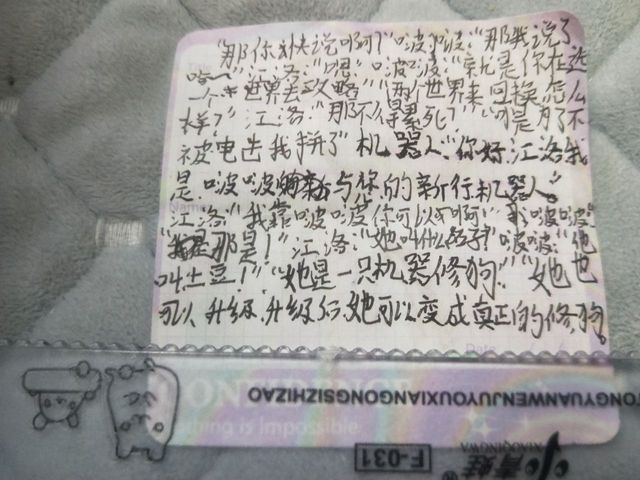 "那你对夫说啊?"啵啵:"那我说了
哈~"江洛:"嗯"啵啵:"就是你在这
一个世界去攻略""两个世界来回换怎么
样?"江洛:"那不得累死?""可是为了不
被电击我拼了"机器人"你好江洛我
是啵啵 与你的新行机器人"
江洛"我靠啵啵你可以啊"啵啵:
"那是!"江洛:"她叫什么名字?"啵啵:"他
叫土豆!""她是一只机器修狗""她也
可以升级,升级后她可以变成真正的修狗。
Date
CONFIDENCE
Nothing is Impossible
TONGYUANWENJUYOUXIANGONGSIZHIZAO
F-031
小青蛙®
XIAOQINGWA